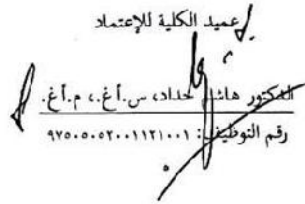 عميد الكلية للإعتماد
الدكتور هاشم حداد، س.أغ.، م.أغ.
رقم التوظيف: ٩٧٥٠٥٠٥٢٠٠١١٢١٠٠١